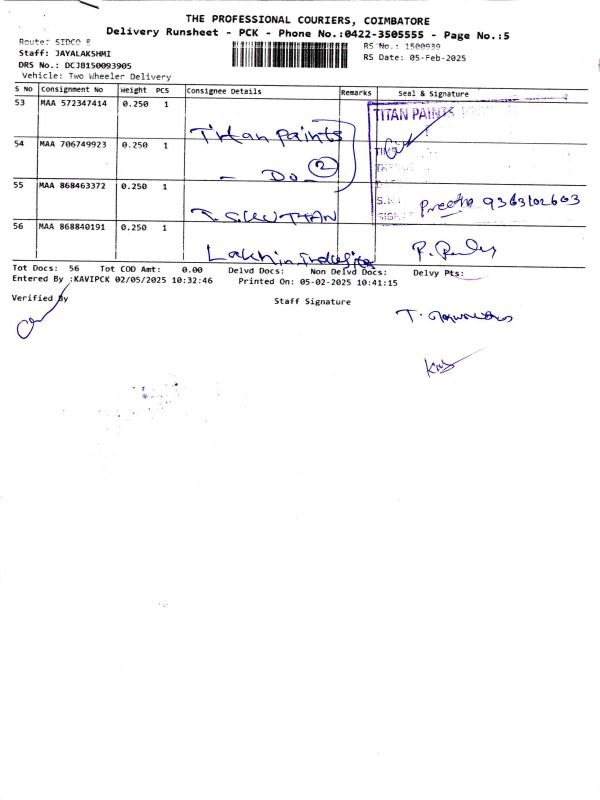 THE PROFESSIONAL COURIERS, COIMBATORE
Delivery Runsheet - PCK - Phone No.:0422-3505555 - Page No.:5
Route: SIDCO E
Staff: JAYALAKSHMI
DRS No.: DCJB150093905
Vehicle: Two Wheeler Delivery
RS No.: 1500939
RS Date: 05-Feb-2025
S No Consignment No Weight PCS Consignee Details Remarks Seal & Signature
53 MAA 572347414 0.250 1 Titan Paints TITAN PAINTS
54 MAA 706749923 0.250 1 - Do - 2
55 MAA 868463372 0.250 1 Preetha 9363102603
56 MAA 868840191 0.250 1 Lakshmi
Tot Docs: 56 Tot COD Amt: 0.00 Delvd Docs: Non Delvd Docs: Delvy Pts:
Entered By :KAVIPCK 02/05/2025 10:32:46 Printed On: 05-02-2025 10:41:15
Verified By Staff Signature